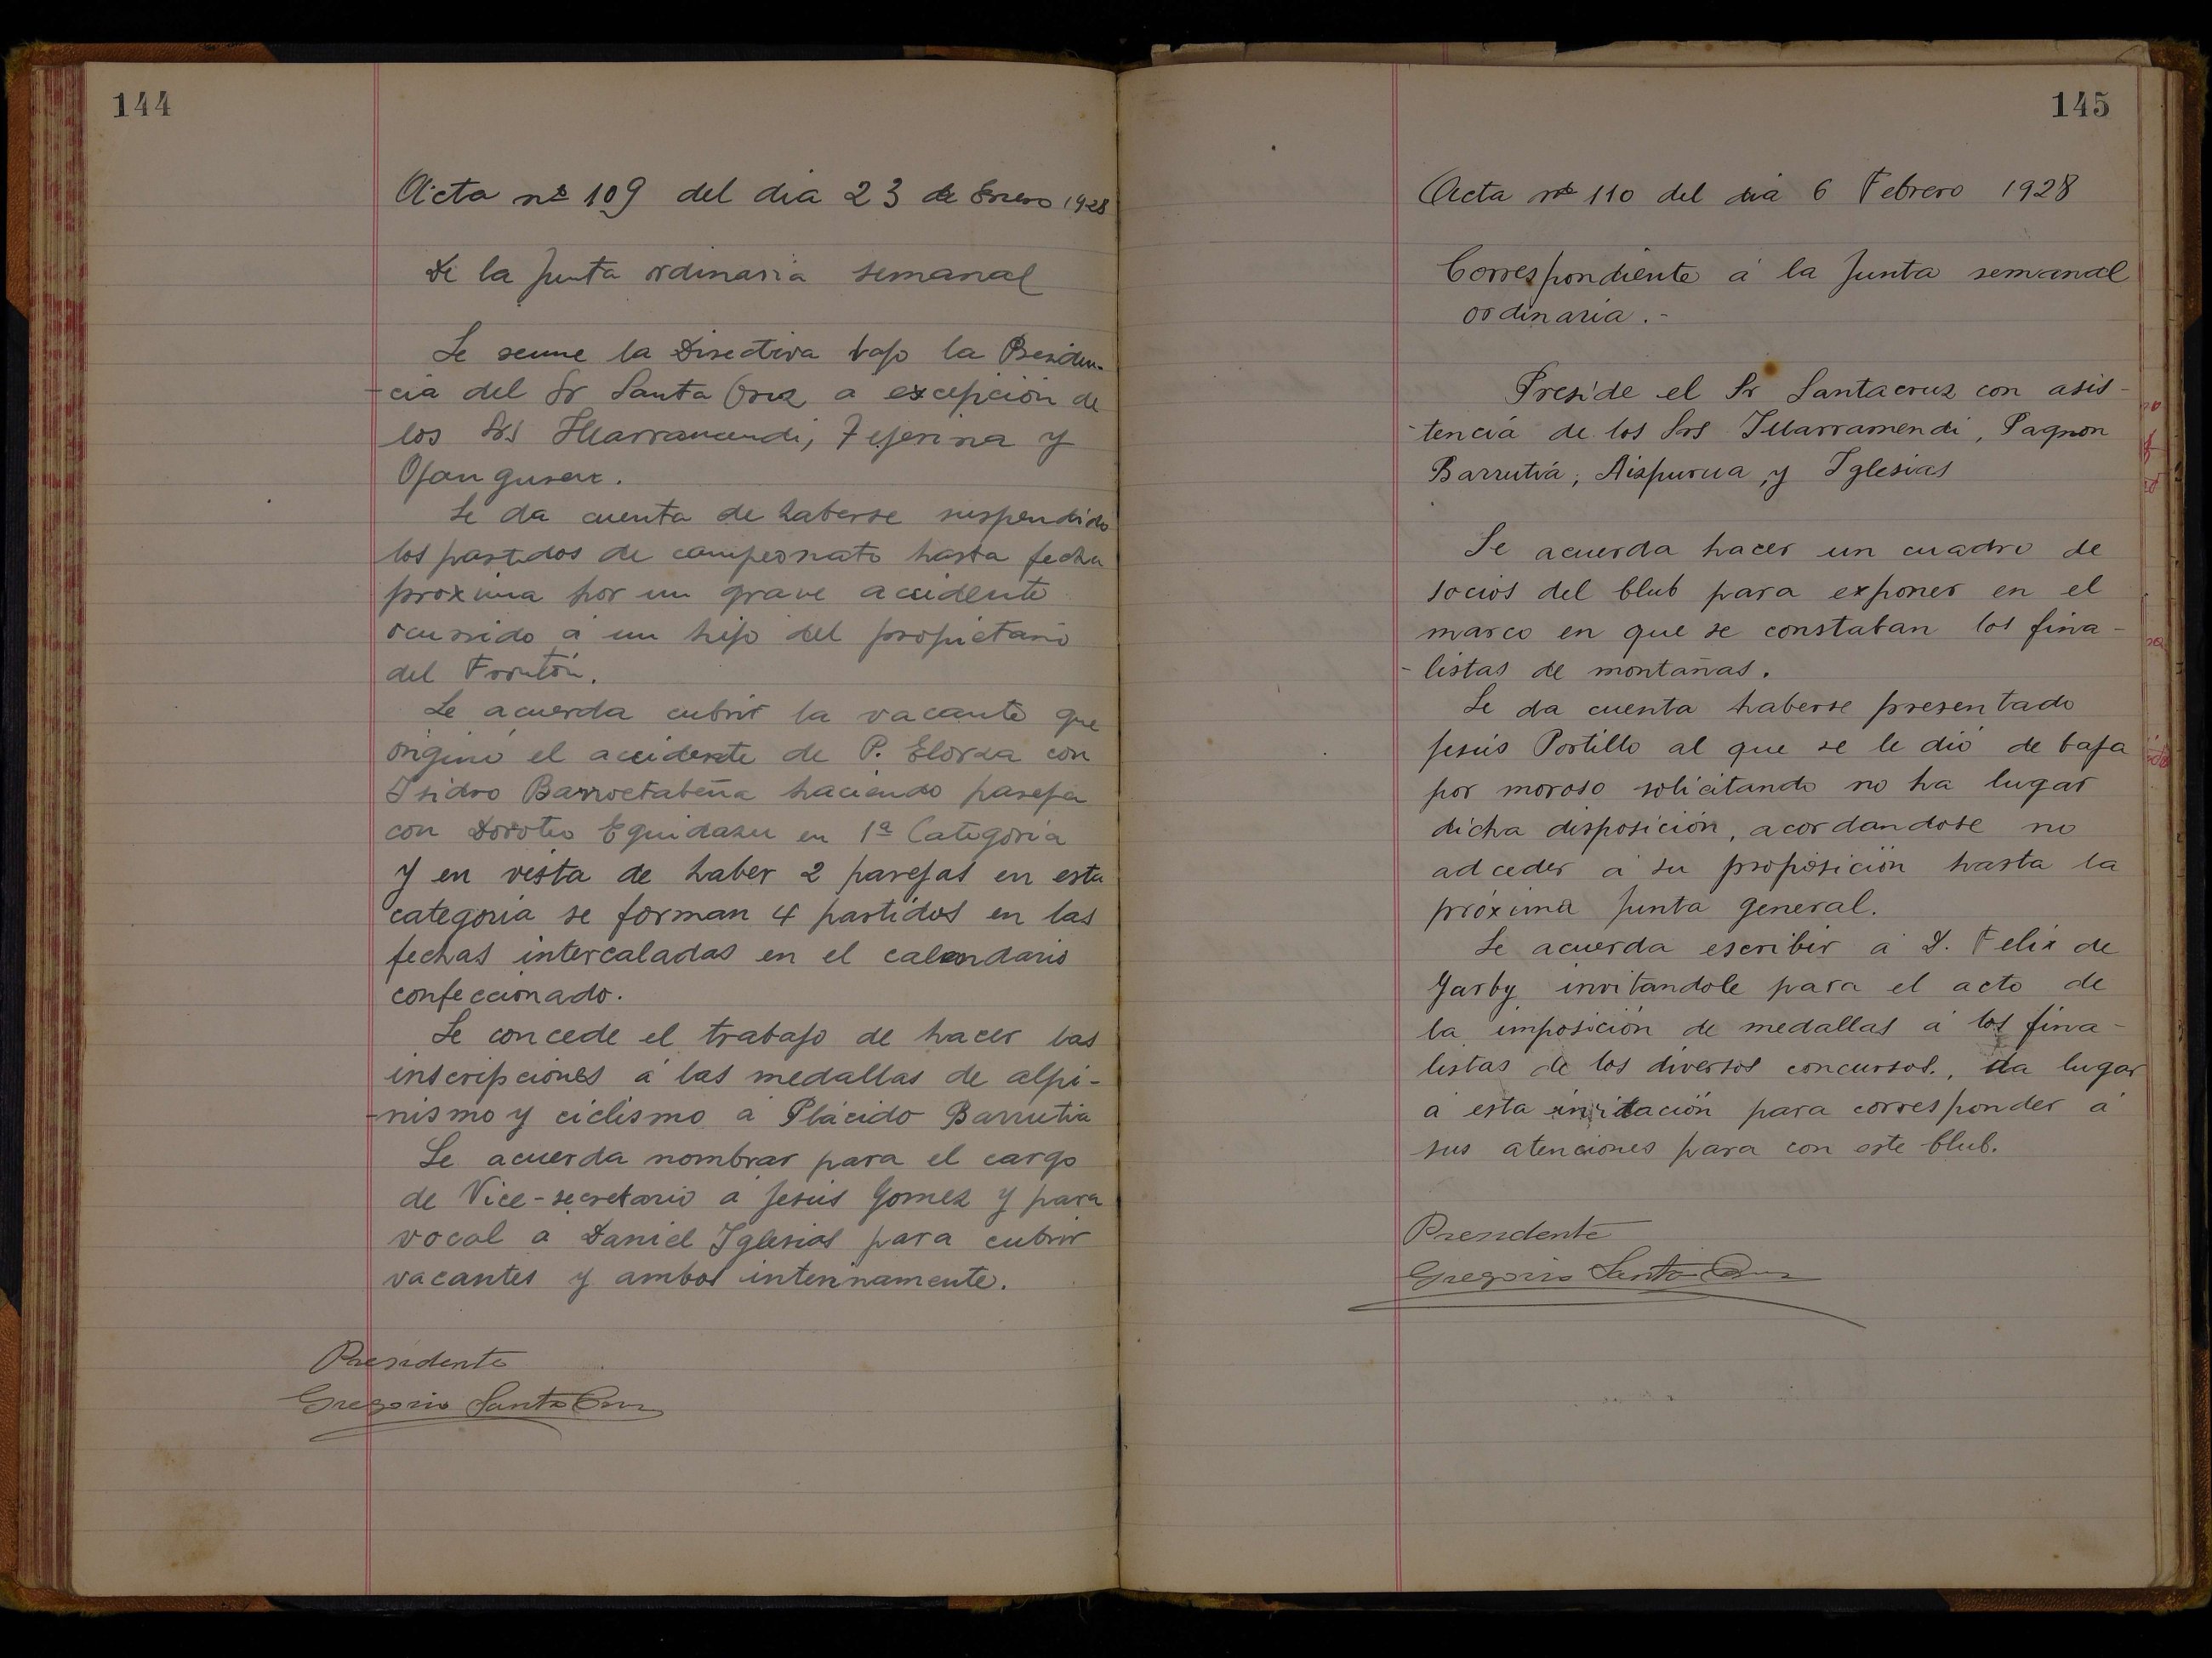 144
Acta nº 109 del dia 23 de Enero 1928
De la Junta ordinaria semanal
Se reune la Directiva bajo la Presiden-
-cia del Sr Santa Cruz a excepción de
los Srs Illarramendi, Tejerina y
Ojanguren.
Se da cuenta de haberse suspendido
los partidos de campeonato hasta fecha
proxima por un grave accidente
ocurrido á un hijo del propietario
del Frontón.
Se acuerda cubrir la vacante que
originó el accidente de P. Elorza con
Isidro Barroetabeña haciendo pareja
con Doroteo Eguidazu en 1ª Categoria
y en vista de haber 2 parejas en esta
categoria se forman 4 partidos en las
fechas intercaladas en el calendario
confeccionado.
Se concede el trabajo de hacer las
inscripciones á las medallas de alpi-
-nismo y ciclismo á Plácido Barrutia
Se acuerda nombrar para el cargo
de Vice-secretario a Jesús Gomez y para
vocal a Daniel Iglesias para cubrir
vacantes y ambos interinamente.
Presidente
Gregorio Santa Cruz
145
Acta nº 110 del dia 6 Febrero 1928
Correspondiente á la Junta semanal
ordinaria.-
Preside el Sr Santacruz con asis-
-tencia de los Srs Illarramendi, Pagnon
Barrutia, Aizpurua, y Iglesias
Se acuerda hacer un cuadro de
socios del Club para exponer en el
marco en que se constaban los fina-
-listas de montañas.
Se da cuenta haberse presentado
Jesús Portillo al que se le dió de baja
por moroso solicitando no ha lugar
dicha disposición, acordandose no
adceder á su proposición hasta la
próxima Junta general.
Se acuerda escribir á D. Felix de
Yarby invitandole para el acto de
la imposición de medallas á los fina-
listas de los diversos concursos., da lugar
á esta invitación para corresponder á
sus atenciones para con este Club.
Presidente
Gregorio Santa Cruz